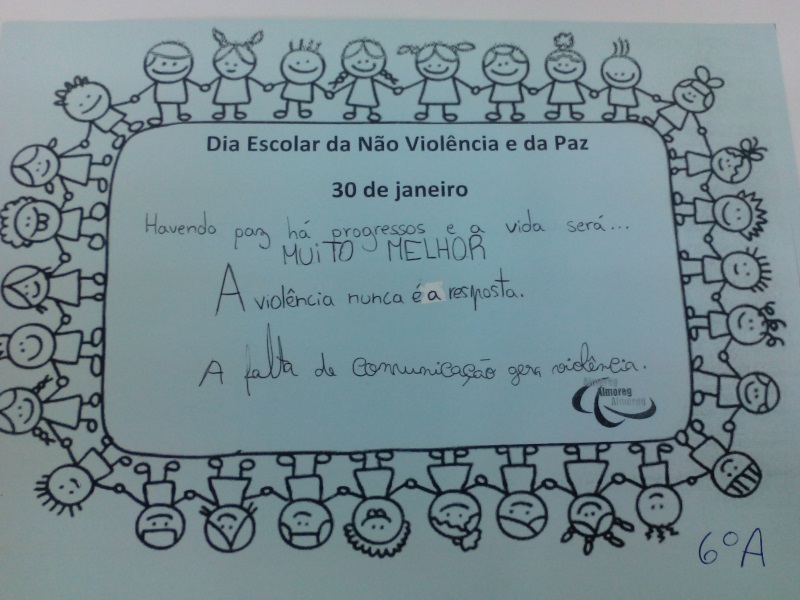 Dia Escolar da Não Violência e da Paz
30 de janeiro
Havendo paz há progressos e a vida será...
MUITO MELHOR
A violência nunca é a resposta.
A falta de comunicação gera violência.
Almoreg
Almoreg
Almoreg
6º A